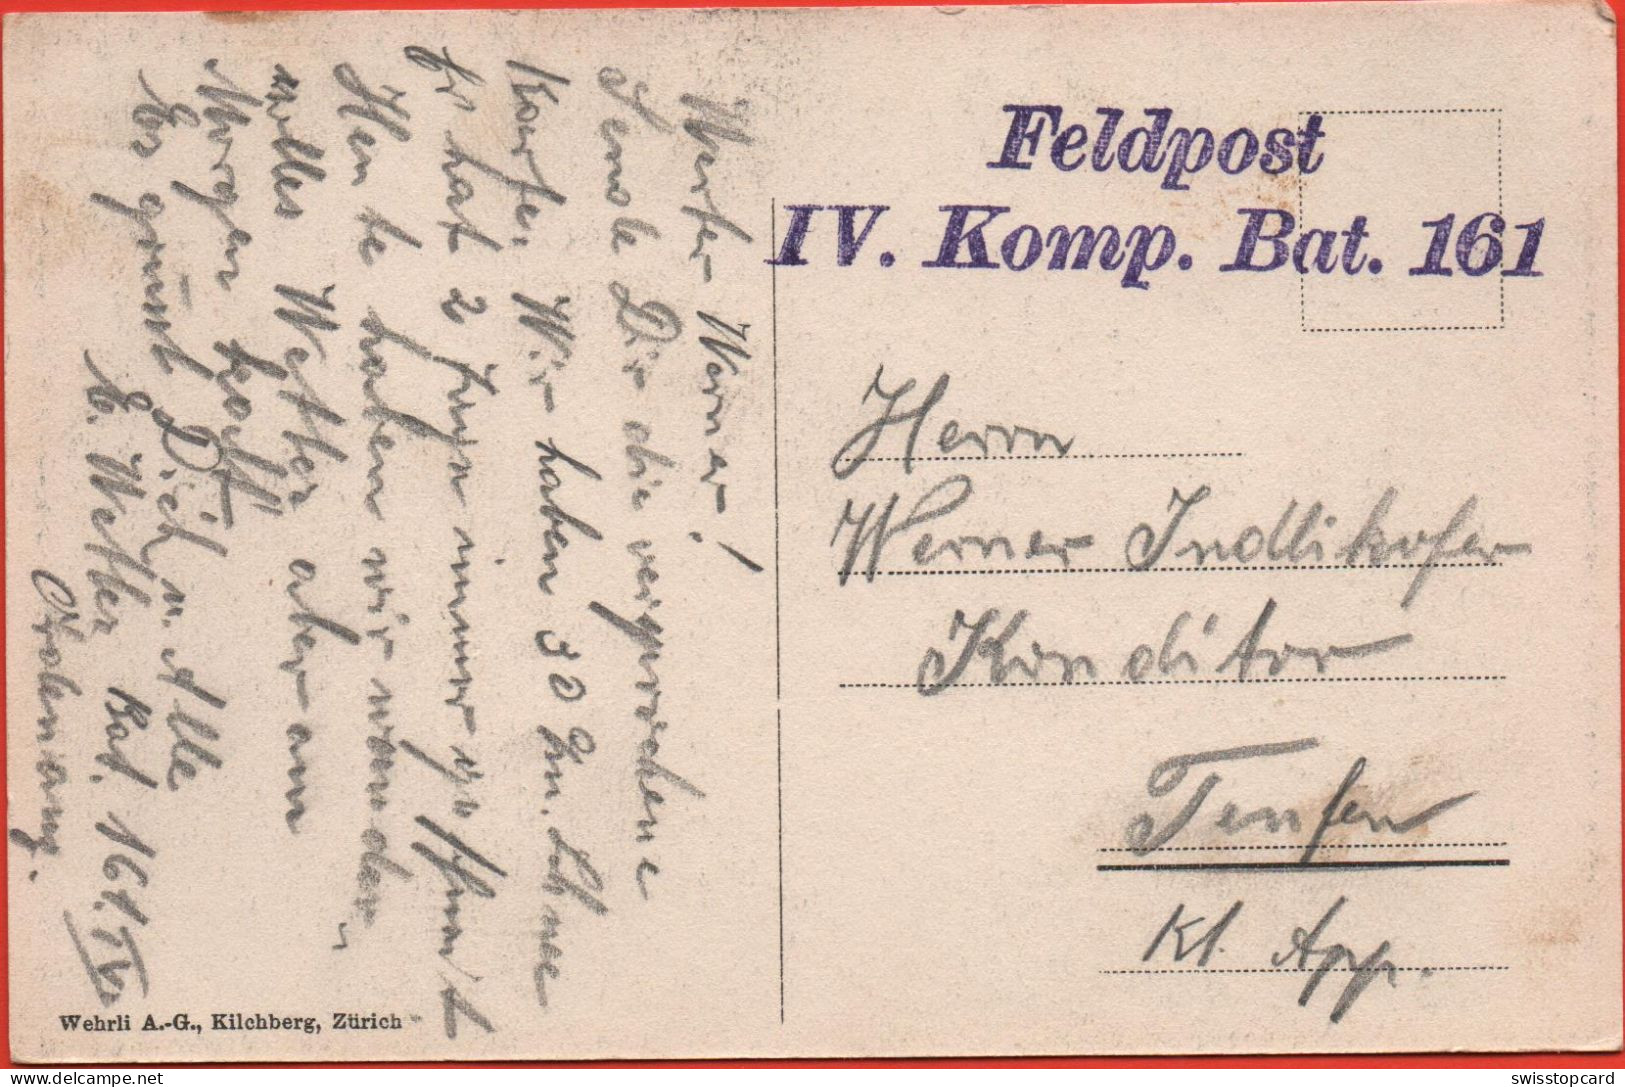 Werter Werner!
Sende Dir die versprochene
Karte. Wir haben 30 Zm. Schnee
Er hat 2 Tage immer geschneit
Heute haben wir
volles Wetter aber am
Morgen kalt
Es grüsst Dich u. Alle
E. Wetter Bat. 161. IV
Feldpost
IV. Komp. Bat. 161
Herrn
Werner Indlikofer
Konditor
Teufen
Kt. App.
Wehrli A.-G., Kilchberg, Zürich
swisstopcard